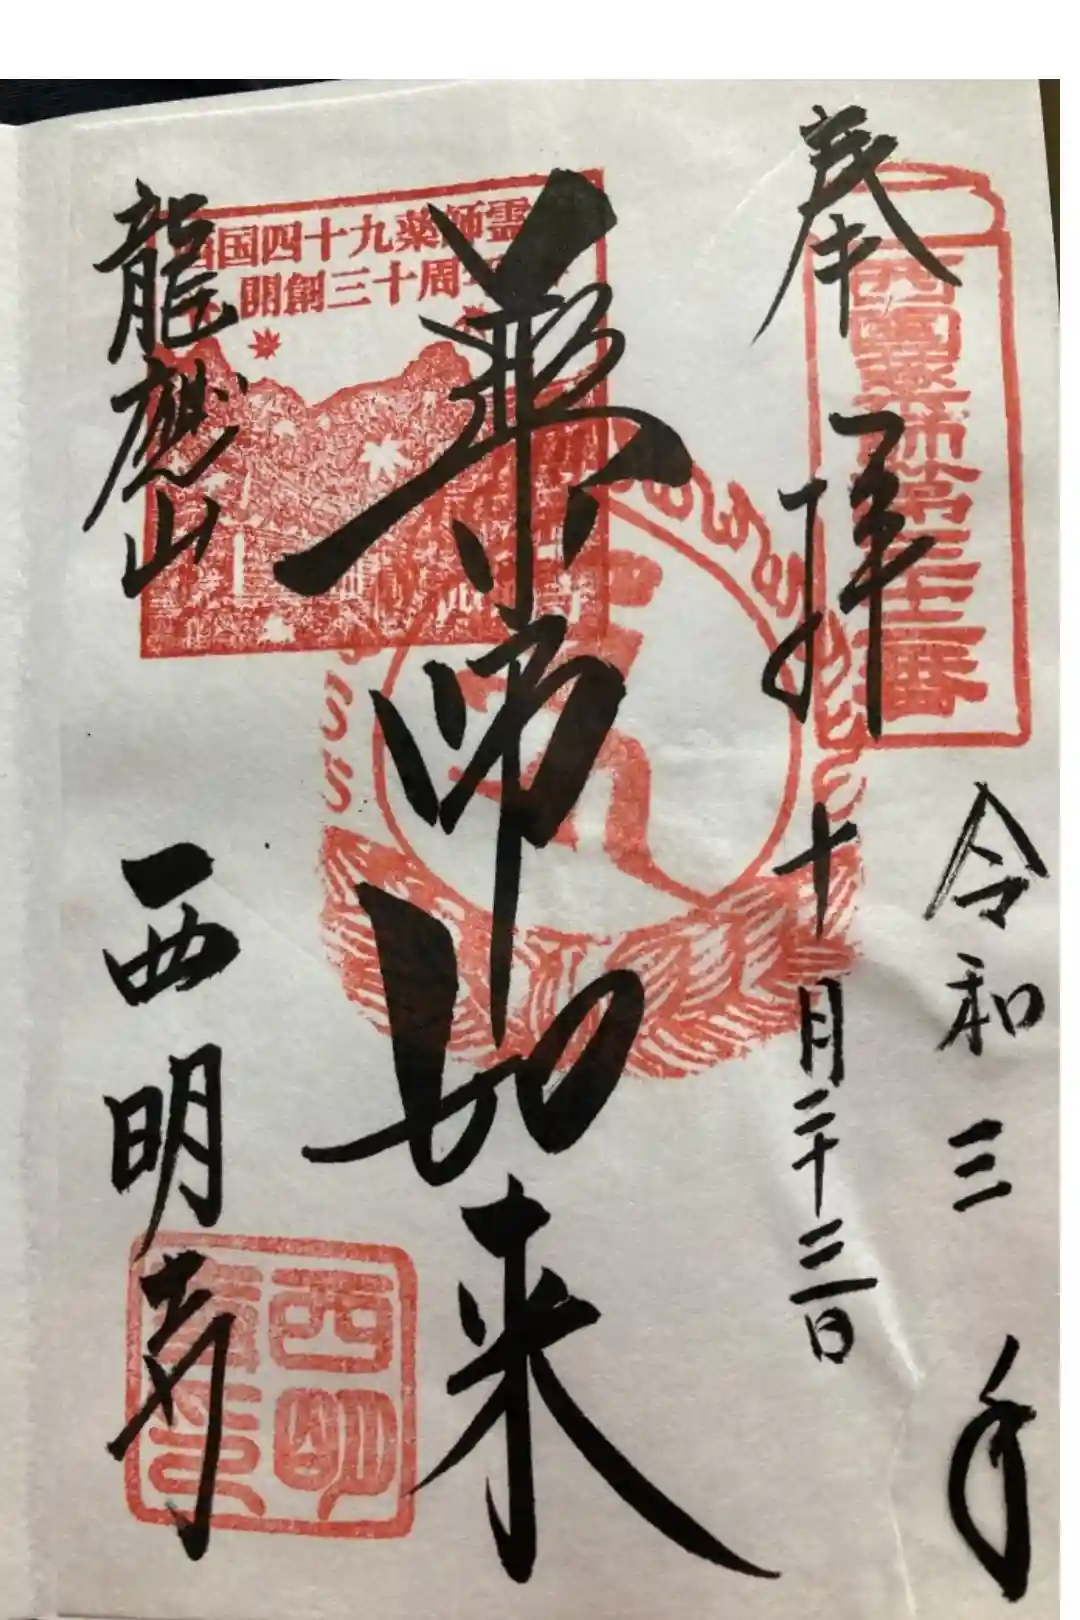 奉拝
西國薬師第三十二番
令和三年
十月二十三日
薬師如来
国四十九薬師霊
開創三十周
龍應山
西明寺
西明
寺印